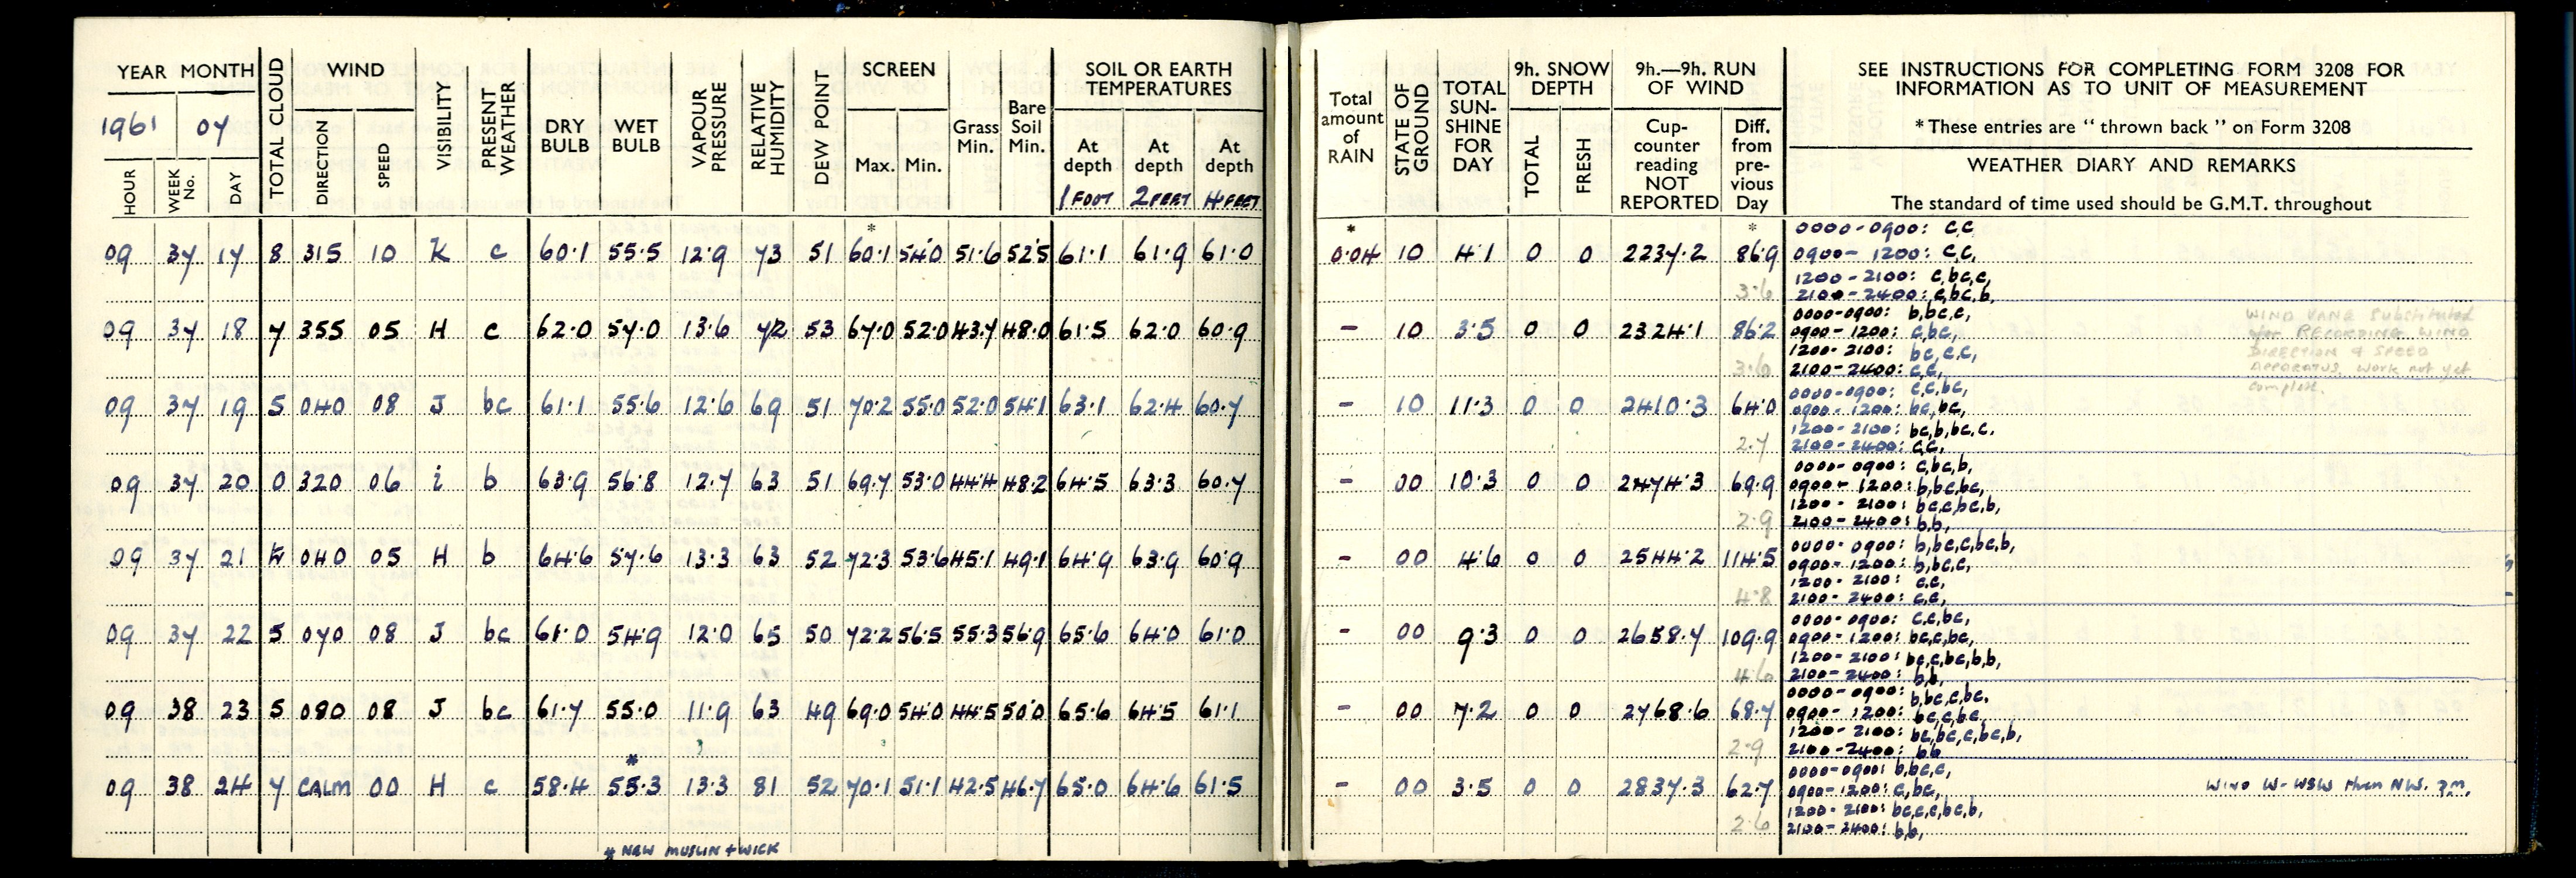 YEAR MONTH TOTAL CLOUD WIND VISIBILITY PRESENT WEATHER DRY BULB WET BULB VAPOUR PRESSURE RELATIVE HUMIDITY DEW POINT SCREEN Grass Min. Bare Soil Min. SOIL OR EARTH TEMPERATURES
1961 07
HOUR WEEK No. DAY DIRECTION SPEED Max. Min. At depth At depth At depth
1 FOOT 2 FEET 4 FEET
Total amount of RAIN STATE OF GROUND TOTAL SUN-SHINE FOR DAY 9h. SNOW DEPTH 9h.—9h. RUN OF WIND SEE INSTRUCTIONS FOR COMPLETING FORM 3208 FOR
INFORMATION AS TO UNIT OF MEASUREMENT
* These entries are "thrown back" on Form 3208
TOTAL FRESH Cup-counter reading NOT REPORTED Diff. from pre-vious Day WEATHER DIARY AND REMARKS
The standard of time used should be G.M.T. throughout
* * *
09 37 17 8 315 10 K c 60.1 55.5 12.9 73 51 60.1 54.0 51.6 52.5 61.1 61.9 61.0 0.04 10 4.1 0 0 2237.2 86.9
0000-0900: c,c
0900-1200: c,c,
1200-2100: c,bc,c,
3.6 2100-2400: c,bc,b,
09 37 18 7 355 05 H c 62.0 57.0 13.6 72 53 67.0 52.0 43.7 48.0 61.5 62.0 60.9 - 10 3.5 0 0 2324.1 86.2
0000-0900: b,bc,c,
0900-1200: c,bc,
1200-2100: bc,c,c,
3.6 2100-2400: c,c,
WIND VANE Substituted
for RECORDING WIND
DIRECTION & SPEED
APPARATUS. Work not yet
complete.
09 37 19 5 040 08 J bc 61.1 55.6 12.6 69 51 70.2 55.0 52.0 54.1 63.1 62.4 60.7 - 10 11.3 0 0 2410.3 64.0
0000-0900: c,c,bc,
0900-1200: bc,bc,
1200-2100: bc,b,bc,c,
2.7 2100-2400: c,c,
09 37 20 0 320 06 i b 63.9 56.8 12.7 63 51 69.7 53.0 44.4 48.2 64.5 63.3 60.7 - 00 10.3 0 0 2474.3 69.9
0000-0900: c,bc,b,
0900-1200: b,bc,bc,
1200-2100: bc,c,bc,b,
2.9 2100-2400: b,b,
09 37 21 040 05 H b 64.6 57.6 13.3 63 52 72.3 53.6 45.1 49.1 64.9 63.9 60.9 - 00 4.6 0 0 2544.2 114.5
0000-0900: b,bc,c,bc,b,
0900-1200: b,bc,c,
1200-2100: c,c,
4.8 2100-2400: c,c,
09 37 22 5 070 08 J bc 61.0 54.9 12.0 65 50 72.2 56.5 55.3 56.9 65.6 64.0 61.0 - 00 9.3 0 0 2658.7 109.9
0000-0900: c,c,bc,
0900-1200: bc,c,bc,
1200-2100: bc,c,bc,b,b,
4.6 2100-2400: b,b,
09 38 23 5 080 08 J bc 61.7 55.0 11.9 63 49 69.0 54.0 44.5 50.0 65.6 64.5 61.1 - 00 7.2 0 0 2768.6 68.7
0000-0900: b,bc,c,bc,
0900-1200: bc,c,bc,
1200-2100: bc,bc,c,bc,b,
2.9 2100-2400: b,b
*
09 38 24 7 CALM 00 H c 58.4 55.3 13.3 81 52 70.1 51.1 42.5 46.7 65.0 64.6 61.5 - 00 3.5 0 0 2837.3 62.7
0000-0900: b,bc,c,
0900-1200: c,bc,
1200-2100: bc,c,c,bc,b,
2.6 2100-2400: b,b,
WIND W-WSW then NW. pm.
* NEW MUSLIN + WICK